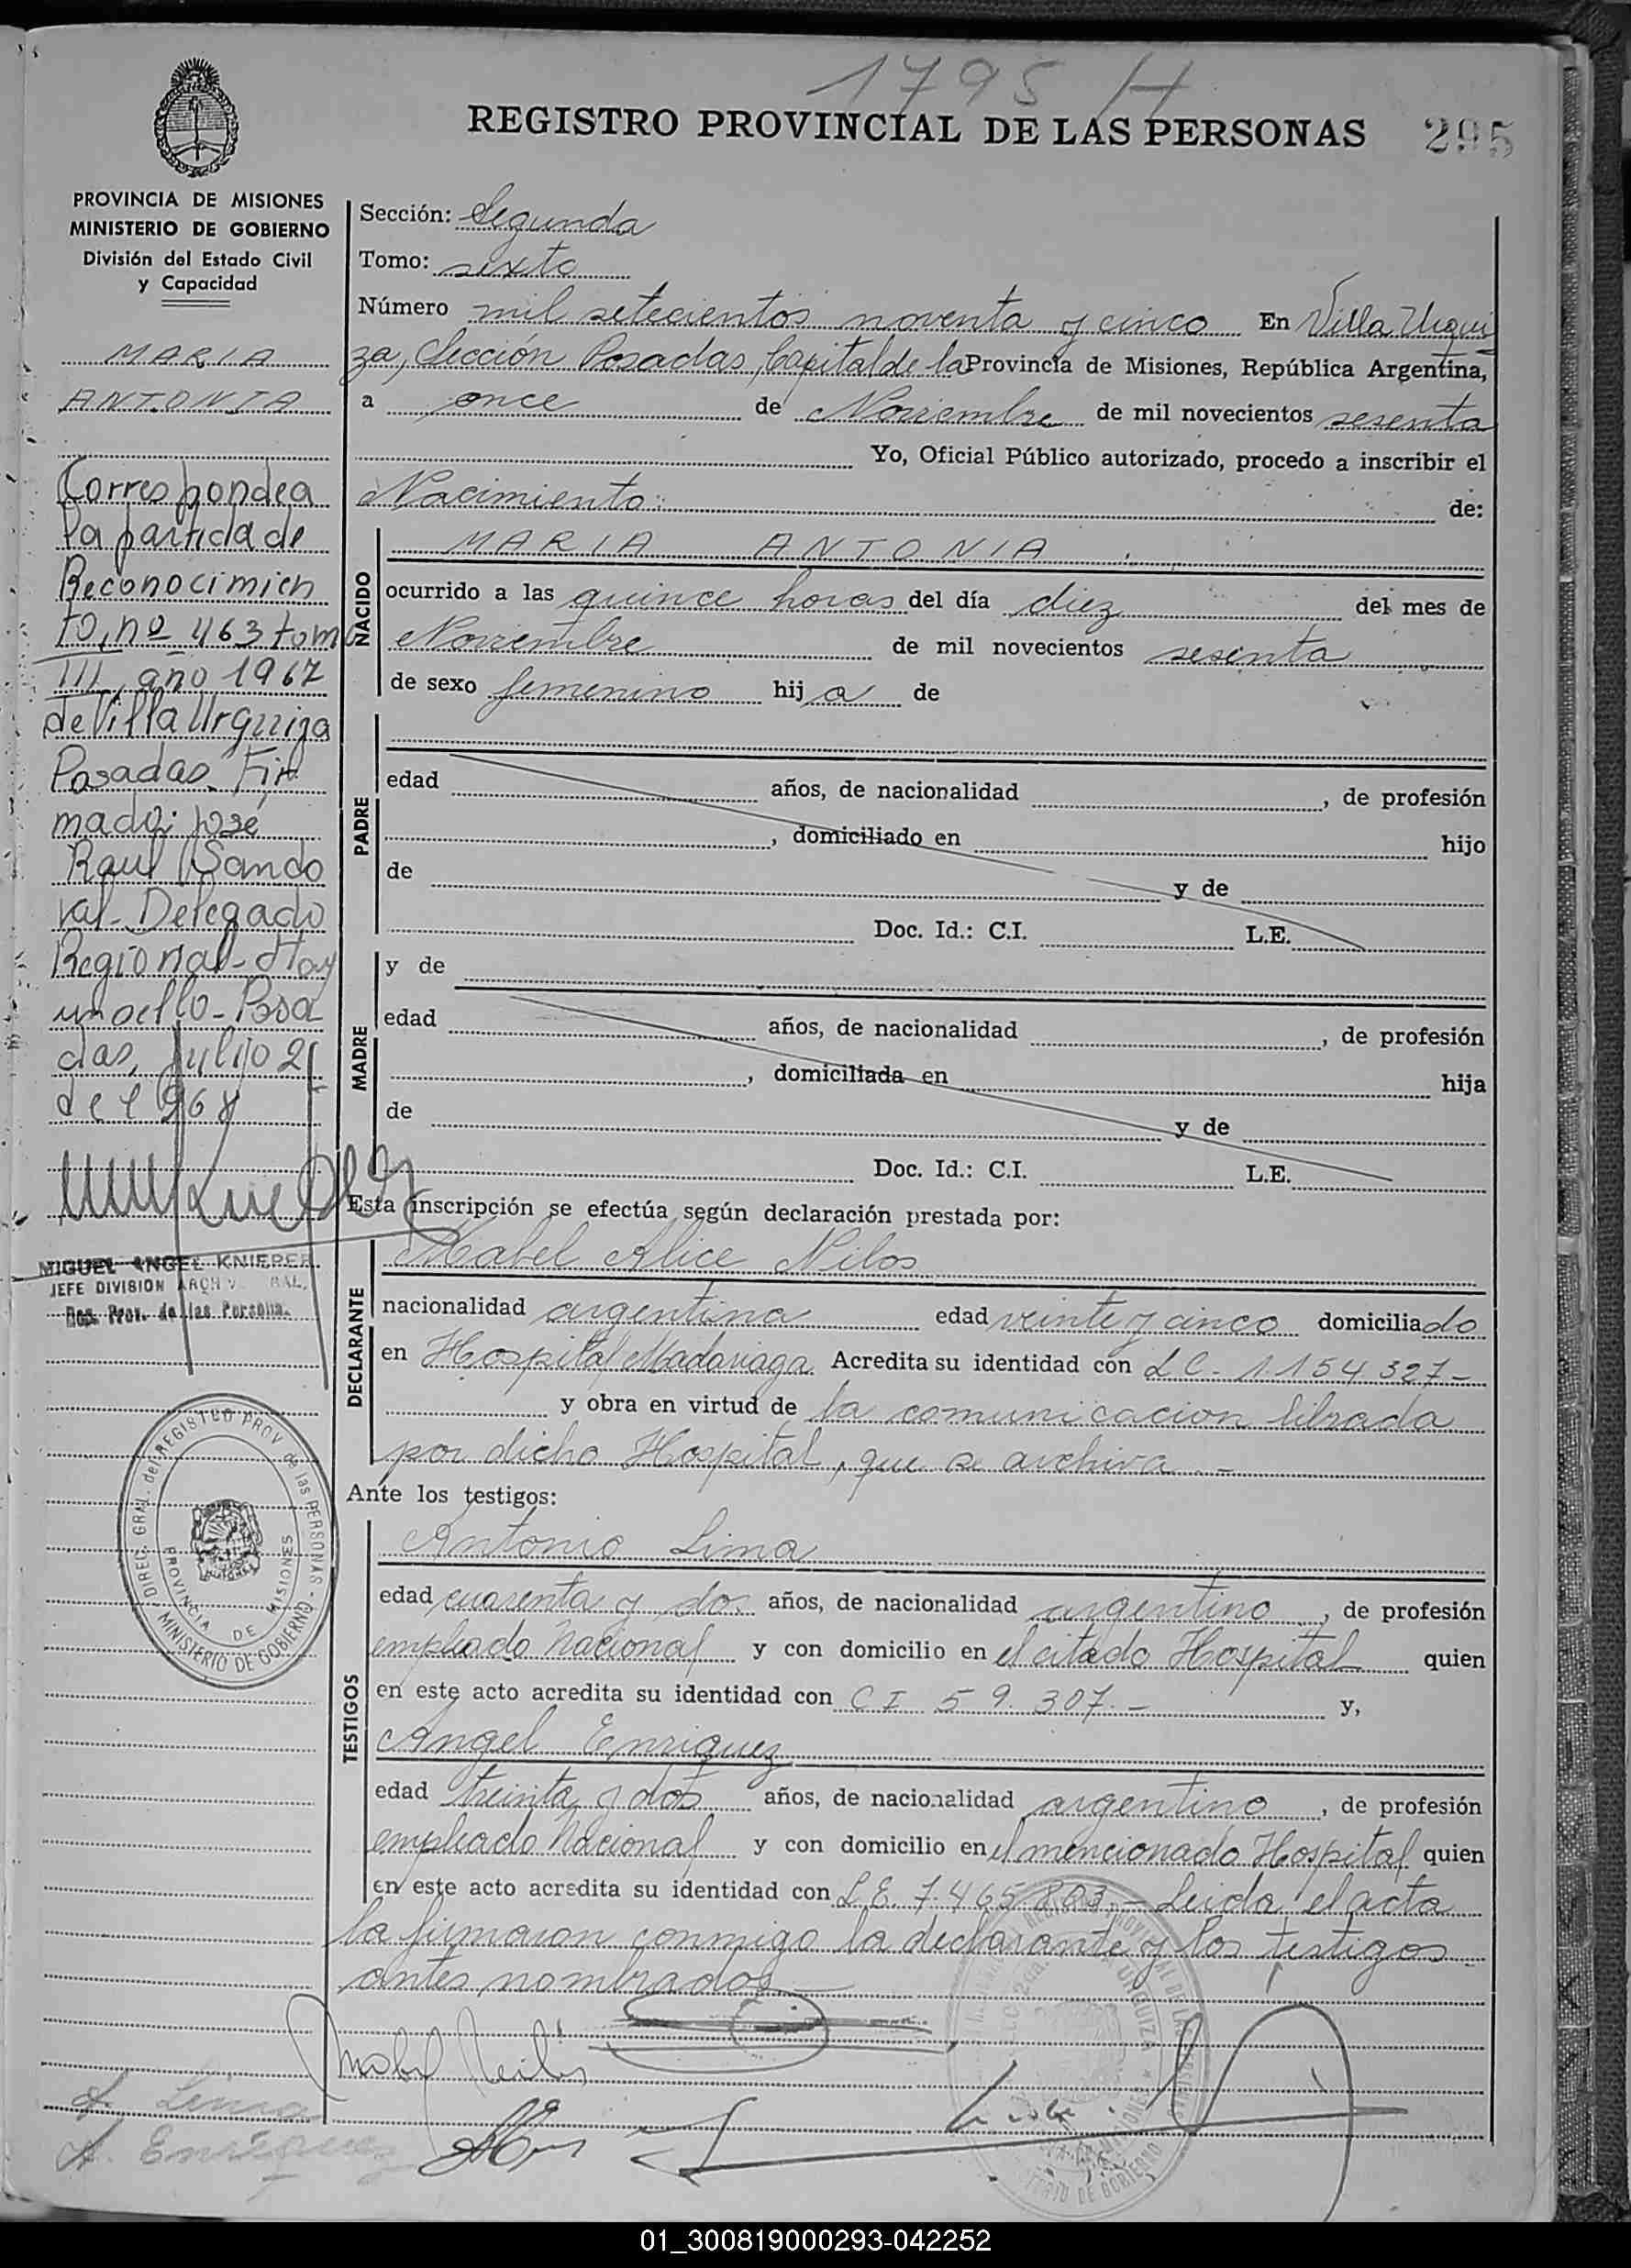 1795 H
REGISTRO PROVINCIAL DE LAS PERSONAS 295
PROVINCIA DE MISIONES
MINISTERIO DE GOBIERNO
División del Estado Civil
y Capacidad
MARIA
ANTONIA
Correspondea
la partida de
Reconocimien
to, nº 463 tomo
III, año 1967
de Villa Urquiza
Posadas. Fir
mado: José
Raul Sando
val - Delegado
Regional - Hay
un sello - Posa
das, Julio 2
de 1968
MIGUEL ANGEL KNIEPER
JEFE DIVISION ARCH
Reg. Prov. de las Persona.
DIREC. GRAL. del REGISTRO PROV. de las PERSONAS - MINISTERIO DE GOBIERNO
PROVINCIA DE MISIONES
Sección: Segunda
Tomo: sexto
Número mil setecientos noventa y cinco En Villa Urqui
za, Sección Posadas, Capital de la Provincia de Misiones, República Argentina,
a once de Noviembre de mil novecientos sesenta
Yo, Oficial Público autorizado, procedo a inscribir el
Nacimiento: de:
NACIDO
MARIA ANTONIA
ocurrido a las quince horas del día diez del mes de
Noviembre de mil novecientos sesenta
de sexo femenino hija de
PADRE
edad años, de nacionalidad , de profesión
, domiciliado en hijo
de y de
Doc. Id.: C.I. L.E.
MADRE
y de
edad años, de nacionalidad , de profesión
, domiciliada en hija
de y de
Doc. Id.: C.I. L.E.
Esta inscripción se efectúa según declaración prestada por:
DECLARANTE
Mabel Alice Nilos
nacionalidad argentina edad veinte y cinco domiciliado
en Hospital Madariaga. Acredita su identidad con L C - 1154 327 -
y obra en virtud de la comunicacion librada
por dicho Hospital, que se archiva. -
Ante los testigos:
TESTIGOS
Antonio Lima
edad cuarenta y dos años, de nacionalidad argentino, de profesión
empleado Nacional y con domicilio en el citado Hospital quien
en este acto acredita su identidad con C I 59.307. - y,
Angel Enriquez
edad treinta y dos años, de nacionalidad argentino, de profesión
empleado Nacional y con domicilio en el mencionado Hospital quien
en este acto acredita su identidad con L.E. 7.465.803. - Leida el acta
la firmaron conmigo la declarante y los testigos
antes nombrados
A. Lima
A. Enriquez
01_300819000293-042252